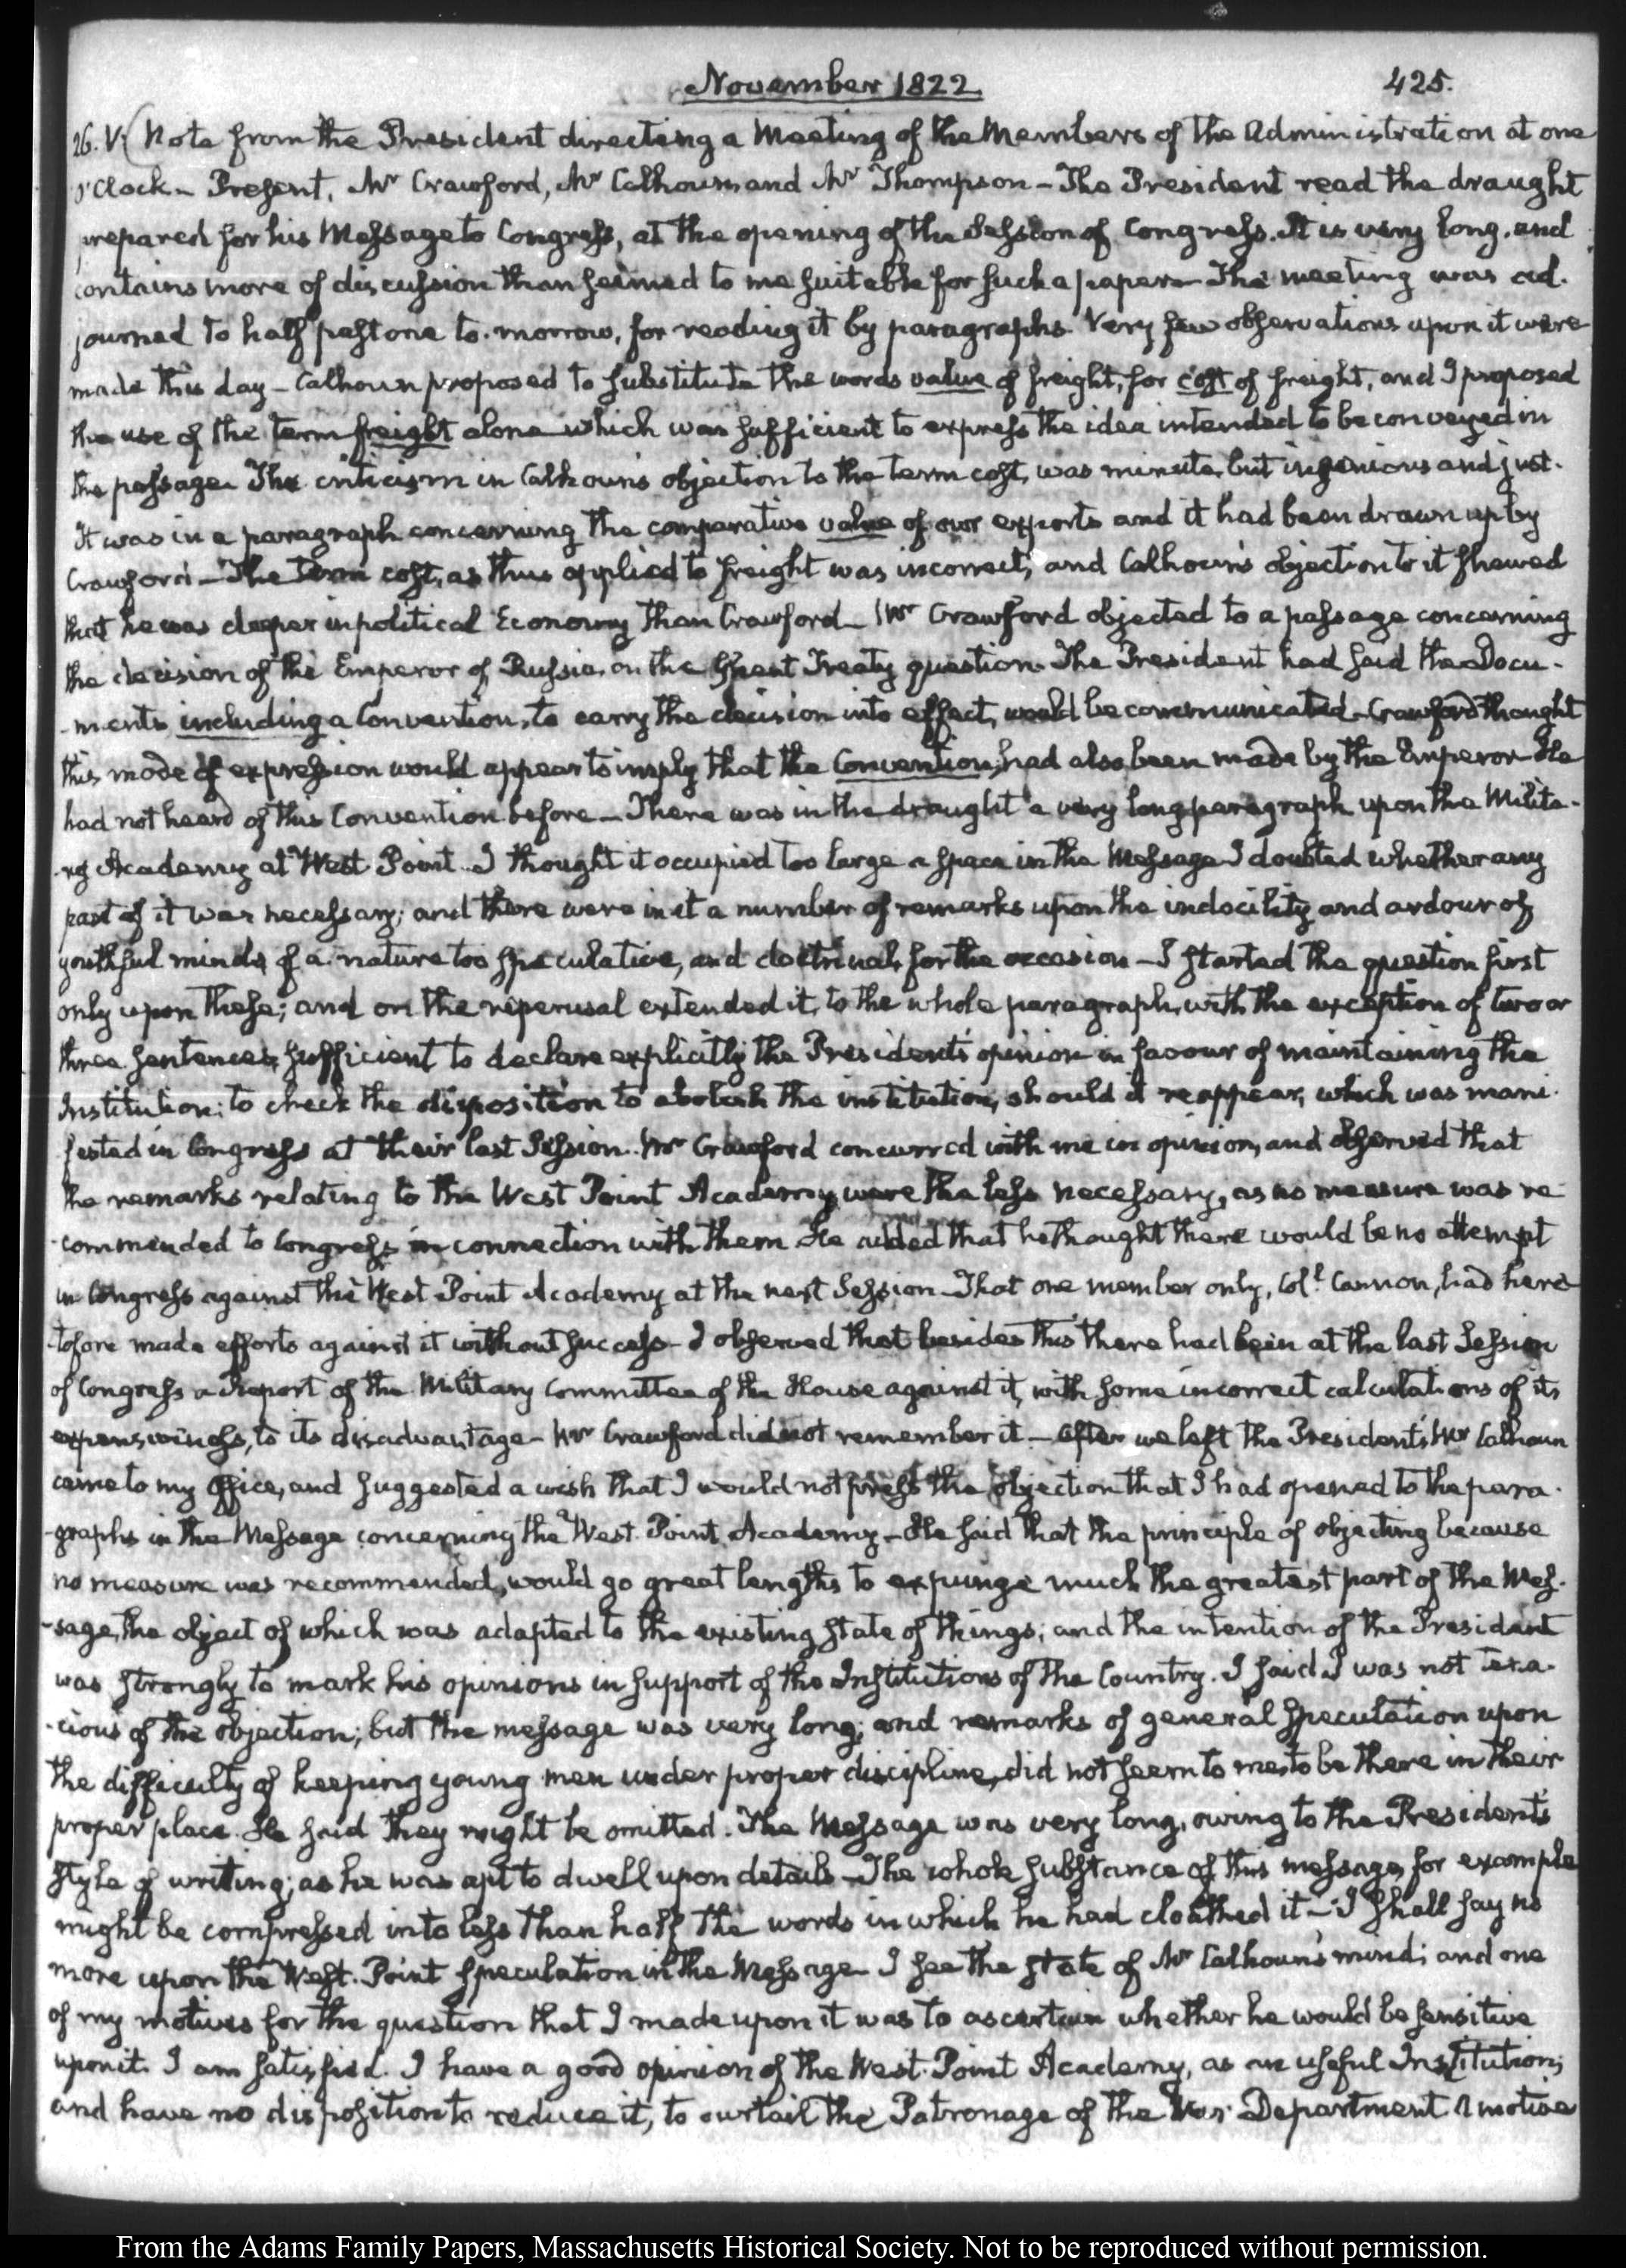 November 1822.
425.
26. V. Note from the President directing a Meeting of the Members of the Administration at one
o'Clock — Present, Mr Crawford, Mr Calhoun, and Mr Thompson — The President read the draught
prepared for his Message to Congress, at the opening of the Session of Congress. It is very long, and
contains more of discussion than seemed to me suitable for such a paper — The meeting was ad-
journed to half past one to-morrow, for reading it by paragraphs. Very few observations upon it were
made this day — Calhoun proposed to substitute the words value of freight, for cost of freight, and I proposed
the use of the term freight alone which was sufficient to express the idea intended to be conveyed in
the passage. The criticism in Calhoun's objection to the term cost, was minute, but ingenious and just.
It was in a paragraph concerning the comparative value of our exports and it had been drawn up by
Crawford — The term cost, as thus applied to freight was incorrect, and Calhoun's objection to it shewed
that he was deeper in political Economy than Crawford — Mr Crawford objected to a passage concerning
the decision of the Emperor of Russia, on the Ghent Treaty question. The President had said the Docu-
-ments including a Convention, to carry the decision into effect, would be communicated — Crawford thought
this mode of expression would appear to imply that the Convention, had also been made by the Emperor — He
had not heard of this Convention before — There was in the draught a very long paragraph upon the Milita-
-ry Academy at West Point. I thought it occupied too large a space in the Message I doubted whether any
part of it was necessary; and there were in it a number of remarks upon the indocility and ardour of
youthful minds, of a nature too speculative, and doctrinal, for the occasion — I started the question first
only upon these; and on the reperusal extended it, to the whole paragraph, with the exception of two or
three sentences, sufficient to declare explicitly the President's opinion in favour of maintaining the
Institution; to check the disposition to abolish the institution, should it reappear, which was mani-
fested in Congress at their last Session. Mr Crawford concurred with me in opinion, and observed that
the remarks relating to the West Point Academy were the less necessary, as no measure was re-
-commended to Congress in connection with them. He added that he thought there would be no attempt
in Congress against the West Point Academy at the next Session — That one member only, Coll. Cannon, had here-
-tofore made efforts against it without success — I observed that besides this there had been at the last Session
of Congress a Report of the Military Committee of the House against it, with some incorrect calculations of its
expensiveness, to its disadvantage — Mr Crawford did not remember it — After we left the President's Mr Calhoun
came to my Office, and suggested a wish that I would not press the objection that I had opened to the para-
-graphs in the Message concerning the West-Point Academy — He said that the principle of objecting because
no measure was recommended, would go great lengths to expunge much the greatest part of the Mes-
-sage, the object of which was adapted to the existing state of things; and the intention of the President
was strongly to mark his opinions in support of the Institutions of the Country. I said I was not tena-
-cious of the objection; but the message was very long; and remarks of general speculation upon
the difficulty of keeping young men under proper discipline, did not seem to me, to be there in their
proper place. He said they might be omitted. The Message was very long, owing to the President's
style of writing; as he was apt to dwell upon details — The whole substance of this message, for example
might be compressed into less than half the words in which he had cloathed it — I shall say no
more upon the West-Point speculation in the Message — I see the state of Mr Calhoun's mind; and one
of my motives for the question that I made upon it was to ascertain whether he would be sensitive
upon it. I am satisfied. I have a good opinion of the West-Point Academy, as an useful Institution;
and have no disposition to reduce it, to curtail the Patronage of the War Department A motive
From the Adams Family Papers, Massachusetts Historical Society. Not to be reproduced without permission.